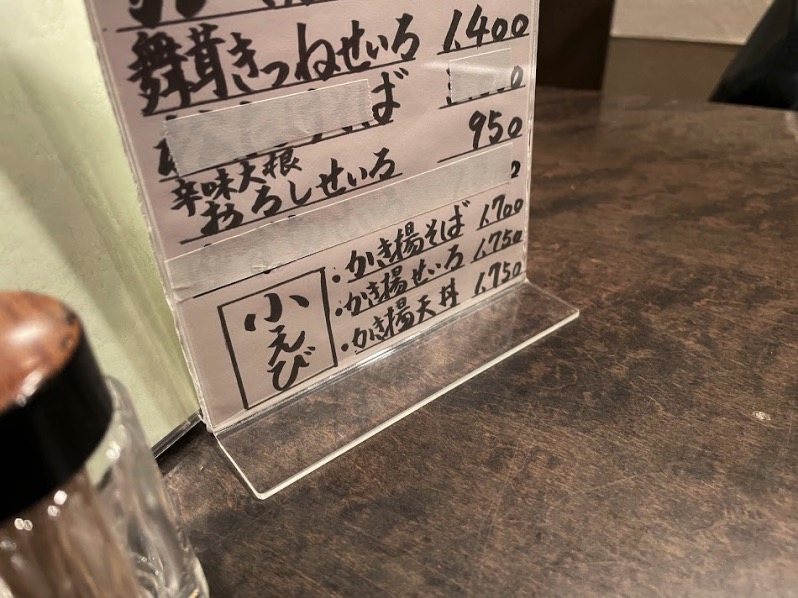 舞茸きつねせいろ 1,400
ば 0
辛味大根
おろしせいろ 950
2
小えび
・かき揚そば 1,700
・かき揚せいろ 1,750
・かき揚天丼 1,750